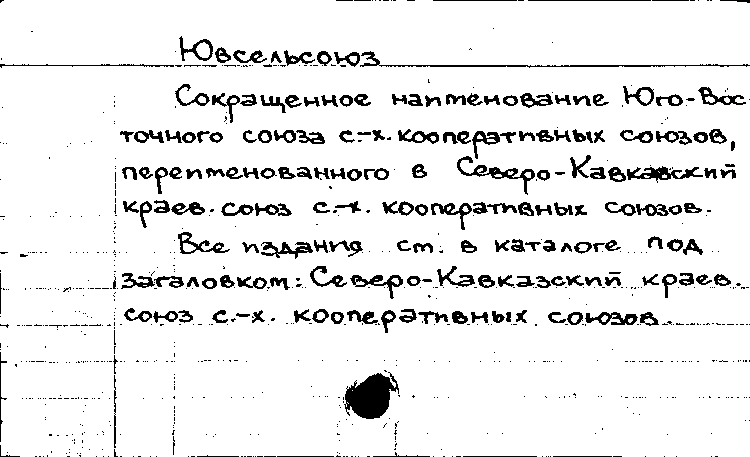 Ювсельсоюз
Сокращенное наименование Юго-Вос
точного союза с.-х. кооперативных союзов,
переименованного в Северо-Кавказский
краев. союз с.-х. кооперативных союзов.
Все издания см. в каталоге под
заголовком: Северо-Кавказский краев.
союз с.-х. кооперативных союзов.